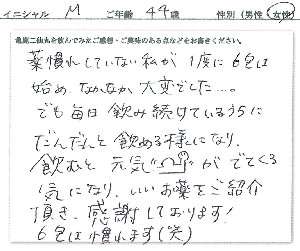 イニシャル M ご年齢 44歳 性別(男性・女性)
亀鹿二仙丸を飲んでみたご感想・ご興味のある点などをお書きください。
薬慣れしていない私が1度に6包は
始め、なかなか大変でした…。
でも毎日飲み続けているうちに
だんだんと飲める様になり、
飲むと元気が でてくる
気になり、いいお薬をご紹介
頂き、感謝しております!
6包は慣れます(笑)